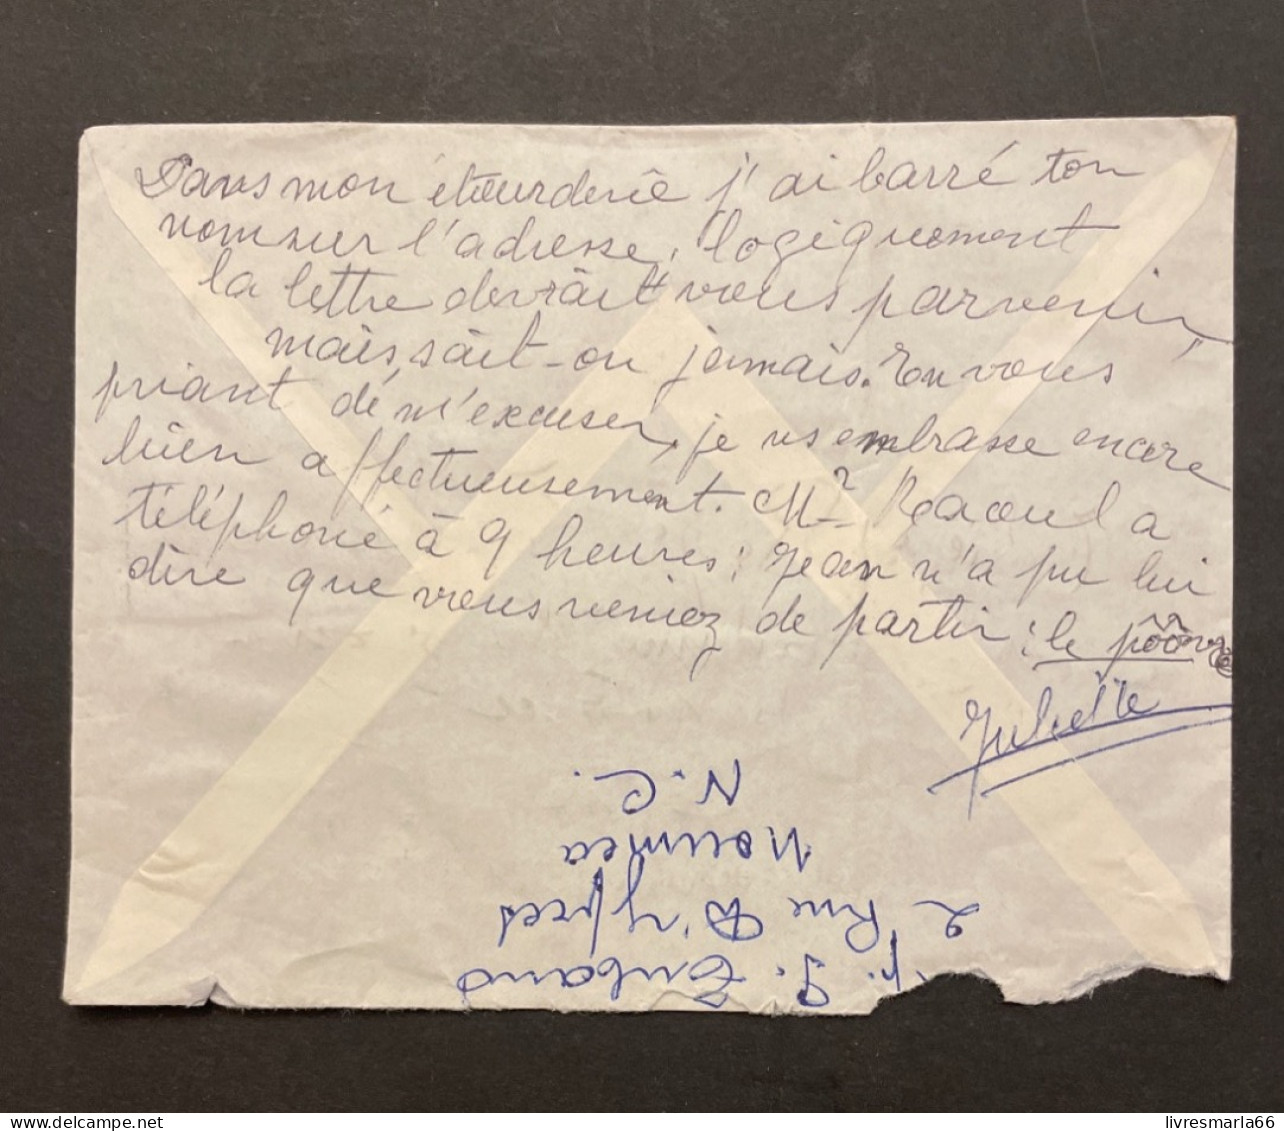 Dans mon étourderie j'ai barré ton
nom sur l'adresse, logiquement
la lettre devrait vous parvenir,
mais sait-on jamais. En vous
priant de m'excuser, je vs embrasse encore
bien affectueusement. Mr Raoul a
téléphoné à 9 heures : Jean n'a pu lui
dire que vous veniez de partir : le pôôvre
Juliette
J. Turband
2 Rue D'Ypres
Nouméa
N.C.
livresmarla66